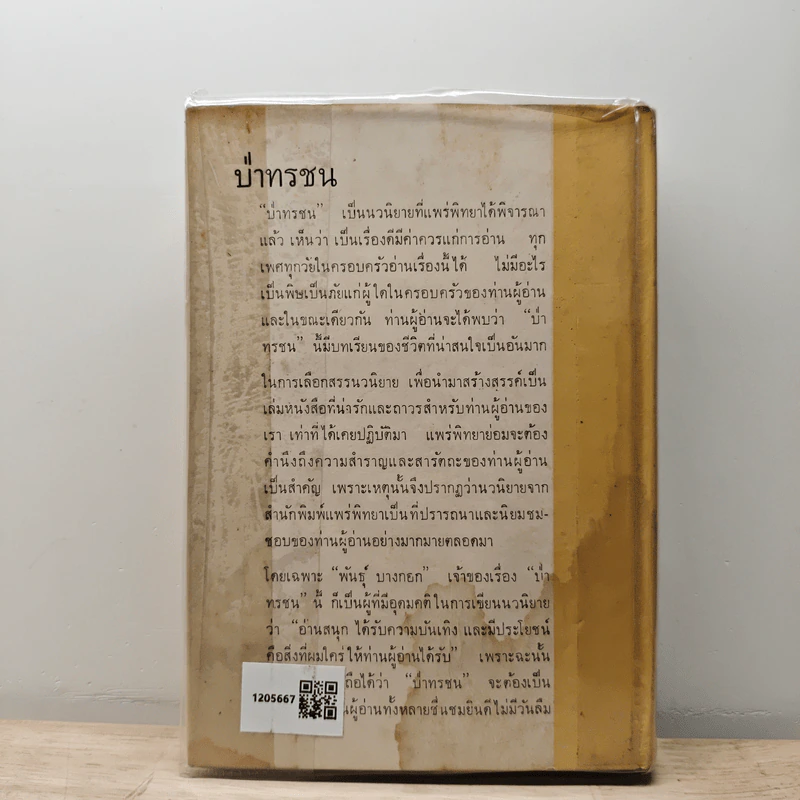 ป่าทรชน
“ป่าทรชน” เป็นนวนิยายที่แพร่พิทยาได้พิจารณา
แล้ว เห็นว่า เป็นเรื่องดีมีค่าควรแก่การอ่าน ทุก
เพศทุกวัยในครอบครัวอ่านเรื่องนี้ได้ ไม่มีอะไร
เป็นพิษเป็นภัยแก่ผู้ใดในครอบครัวของท่านผู้อ่าน
และในขณะเดียวกัน ท่านผู้อ่านจะได้พบว่า “ป่า
ทรชน” นี้มีบทเรียนของชีวิตที่น่าสนใจเป็นอันมาก
ในการเลือกสรรนวนิยาย เพื่อนำมาสร้างสรรค์เป็น
เล่มหนังสือที่น่ารักและถาวรสำหรับท่านผู้อ่านของ
เรา เท่าที่ได้เคยปฏิบัติมา แพร่พิทยาย่อมจะต้อง
คำนึงถึงความสำราญและสารัตถะของท่านผู้อ่าน
เป็นสำคัญ เพราะเหตุนั้นจึงปรากฏว่านวนิยายจาก
สำนักพิมพ์แพร่พิทยาเป็นที่ปรารถนาและนิยมชม-
ชอบของท่านผู้อ่านอย่างมากมายตลอดมา
โดยเฉพาะ “พันธุ์ บางกอก” เจ้าของเรื่อง “ป่า
ทรชน” นี้ ก็เป็นผู้ที่มีอุดมคติในการเขียนนวนิยาย
ว่า “อ่านสนุก ได้รับความบันเทิง และมีประโยชน์
คือสิ่งที่ผมใคร่ให้ท่านผู้อ่านได้รับ” เพราะฉะนั้น
ถือได้ว่า “ป่าทรชน” จะต้องเป็น
ผู้อ่านทั้งหลายชื่นชมยินดีไม่มีวันลืม
1205667